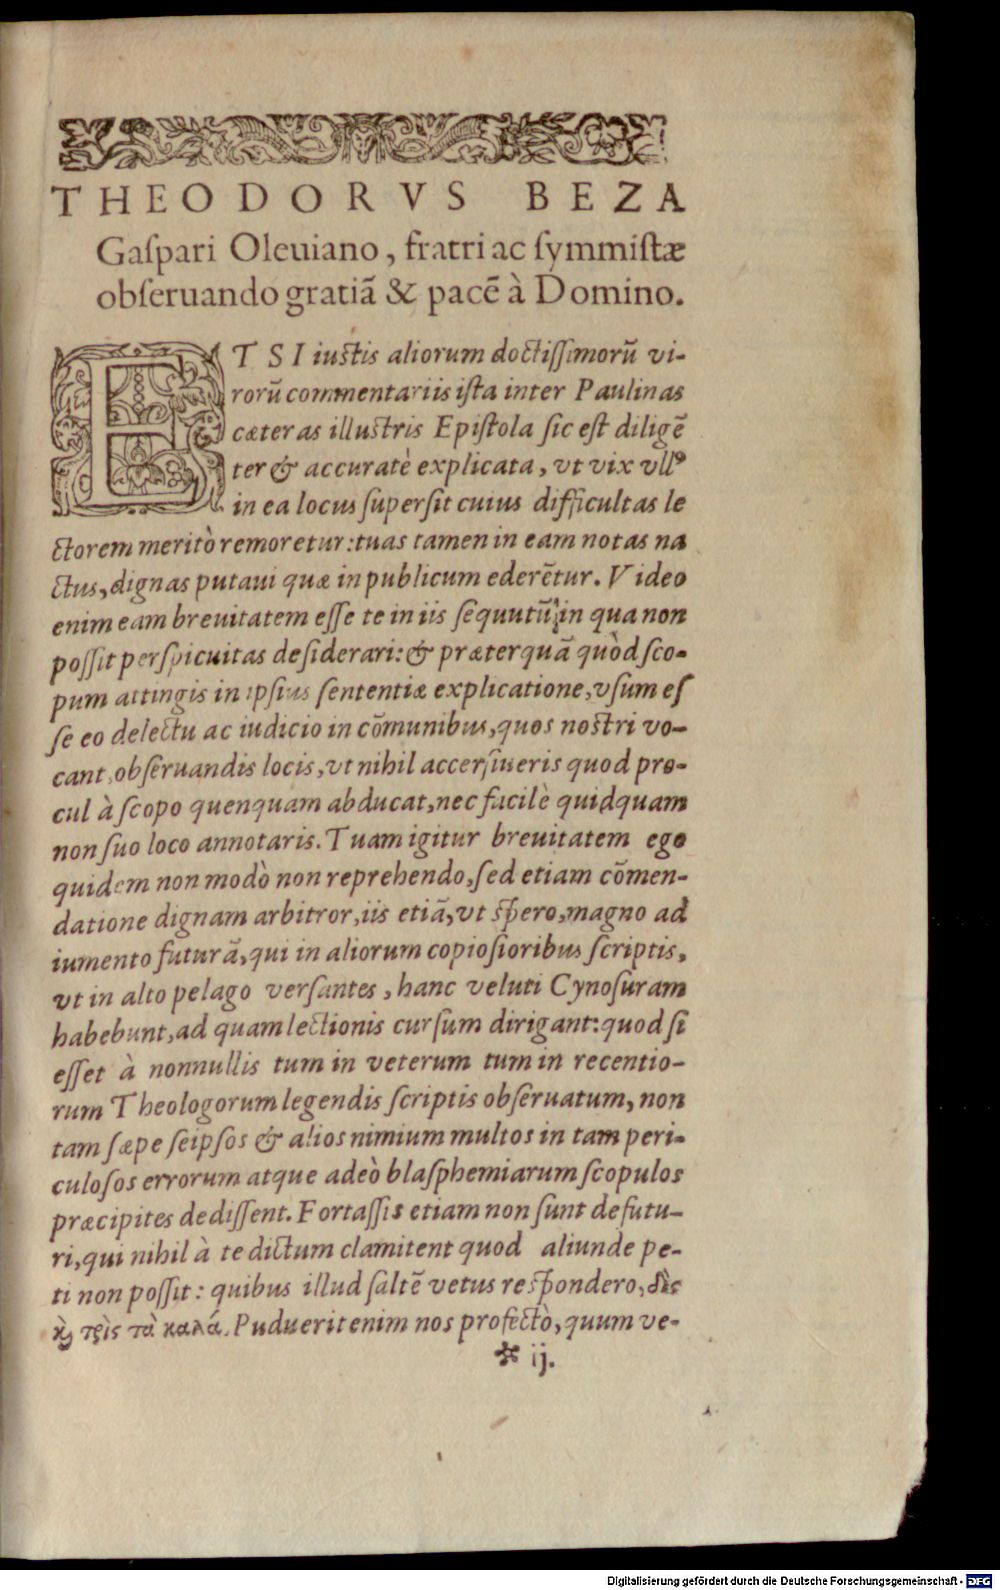 THEODORVS BEZA
Gaſpari Oleuiano, fratri ac ſymmiſtæ
obſeruando gratiã & pacẽ à Domino.
ETSI iuſtis aliorum doctiſſimorũ vi-
rorũ commentariis iſta inter Paulinas
cæteras illuſtris Epiſtola ſic eſt diligẽ
ter & accuratè explicata, vt vix vllꝰ
in ea locus ſuperſit cuius difficultas le
ctorem meritò remoretur: tuas tamen in eam notas na
ctus, dignas putaui quæ in publicum ederẽtur. Video
enim eam breuitatem eſſe te in iis ſequutũ, in qua non
poſſit perſpicuitas deſiderari: & præterquã quòd ſco-
pum attingis in ipſius ſententiæ explicatione, vſum eſ
ſe eo delectu ac iudicio in cõmunibus, quos noſtri vo-
cant, obſeruandis locis, vt nihil accerſiueris quod pro-
cul à ſcopo quenquam abducat, nec facilè quidquam
non ſuo loco annotaris. Tuam igitur breuitatem ego
quidem non modò non reprehendo, ſed etiam cõmen-
datione dignam arbitror, iis etiã, vt ſpero, magno ad
iumento futurã, qui in aliorum copioſioribus ſcriptis,
vt in alto pelago verſantes, hanc veluti Cynoſuram
habebunt, ad quam lectionis curſum dirigant: quod ſi
eſſet à nonnullis tum in veterum tum in recentio-
rum Theologorum legendis ſcriptis obſeruatum, non
tam ſæpe ſeipſos & alios nimium multos in tam peri-
culoſos errorum atque adeò blaſphemiarum ſcopulos
præcipites dediſſent. Fortaſſis etiam non ſunt defutu-
ri, qui nihil à te dictum clamitent quod aliunde pe-
ti non poſſit: quibus illud ſaltẽ vetus reſpondero, δὶς
ϗ̀ τρὶς τὰ καλά. Puduerit enim nos profectò, quum ve-
✻ ij.
Digitalisierung gefördert durch die Deutsche Forschungsgemeinschaft - DFG